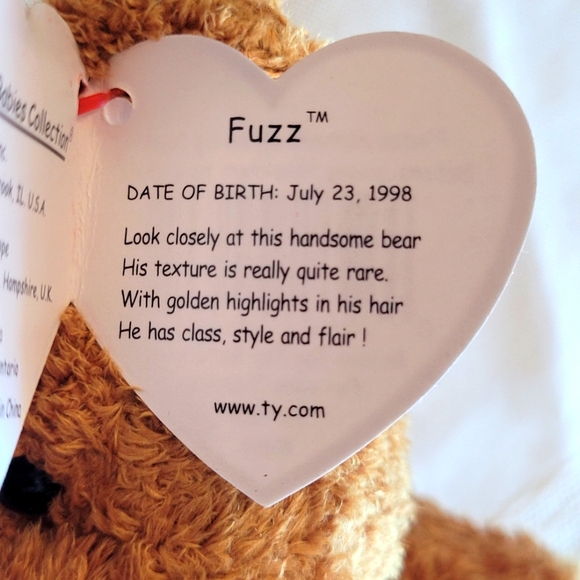 Babies Collection®
nc.
rook, IL. U.S.A.
ope
, Hampshire, U.K.
ntario
in China
Fuzz™
DATE OF BIRTH: July 23, 1998
Look closely at this handsome bear
His texture is really quite rare.
With golden highlights in his hair
He has class, style and flair !
www.ty.com